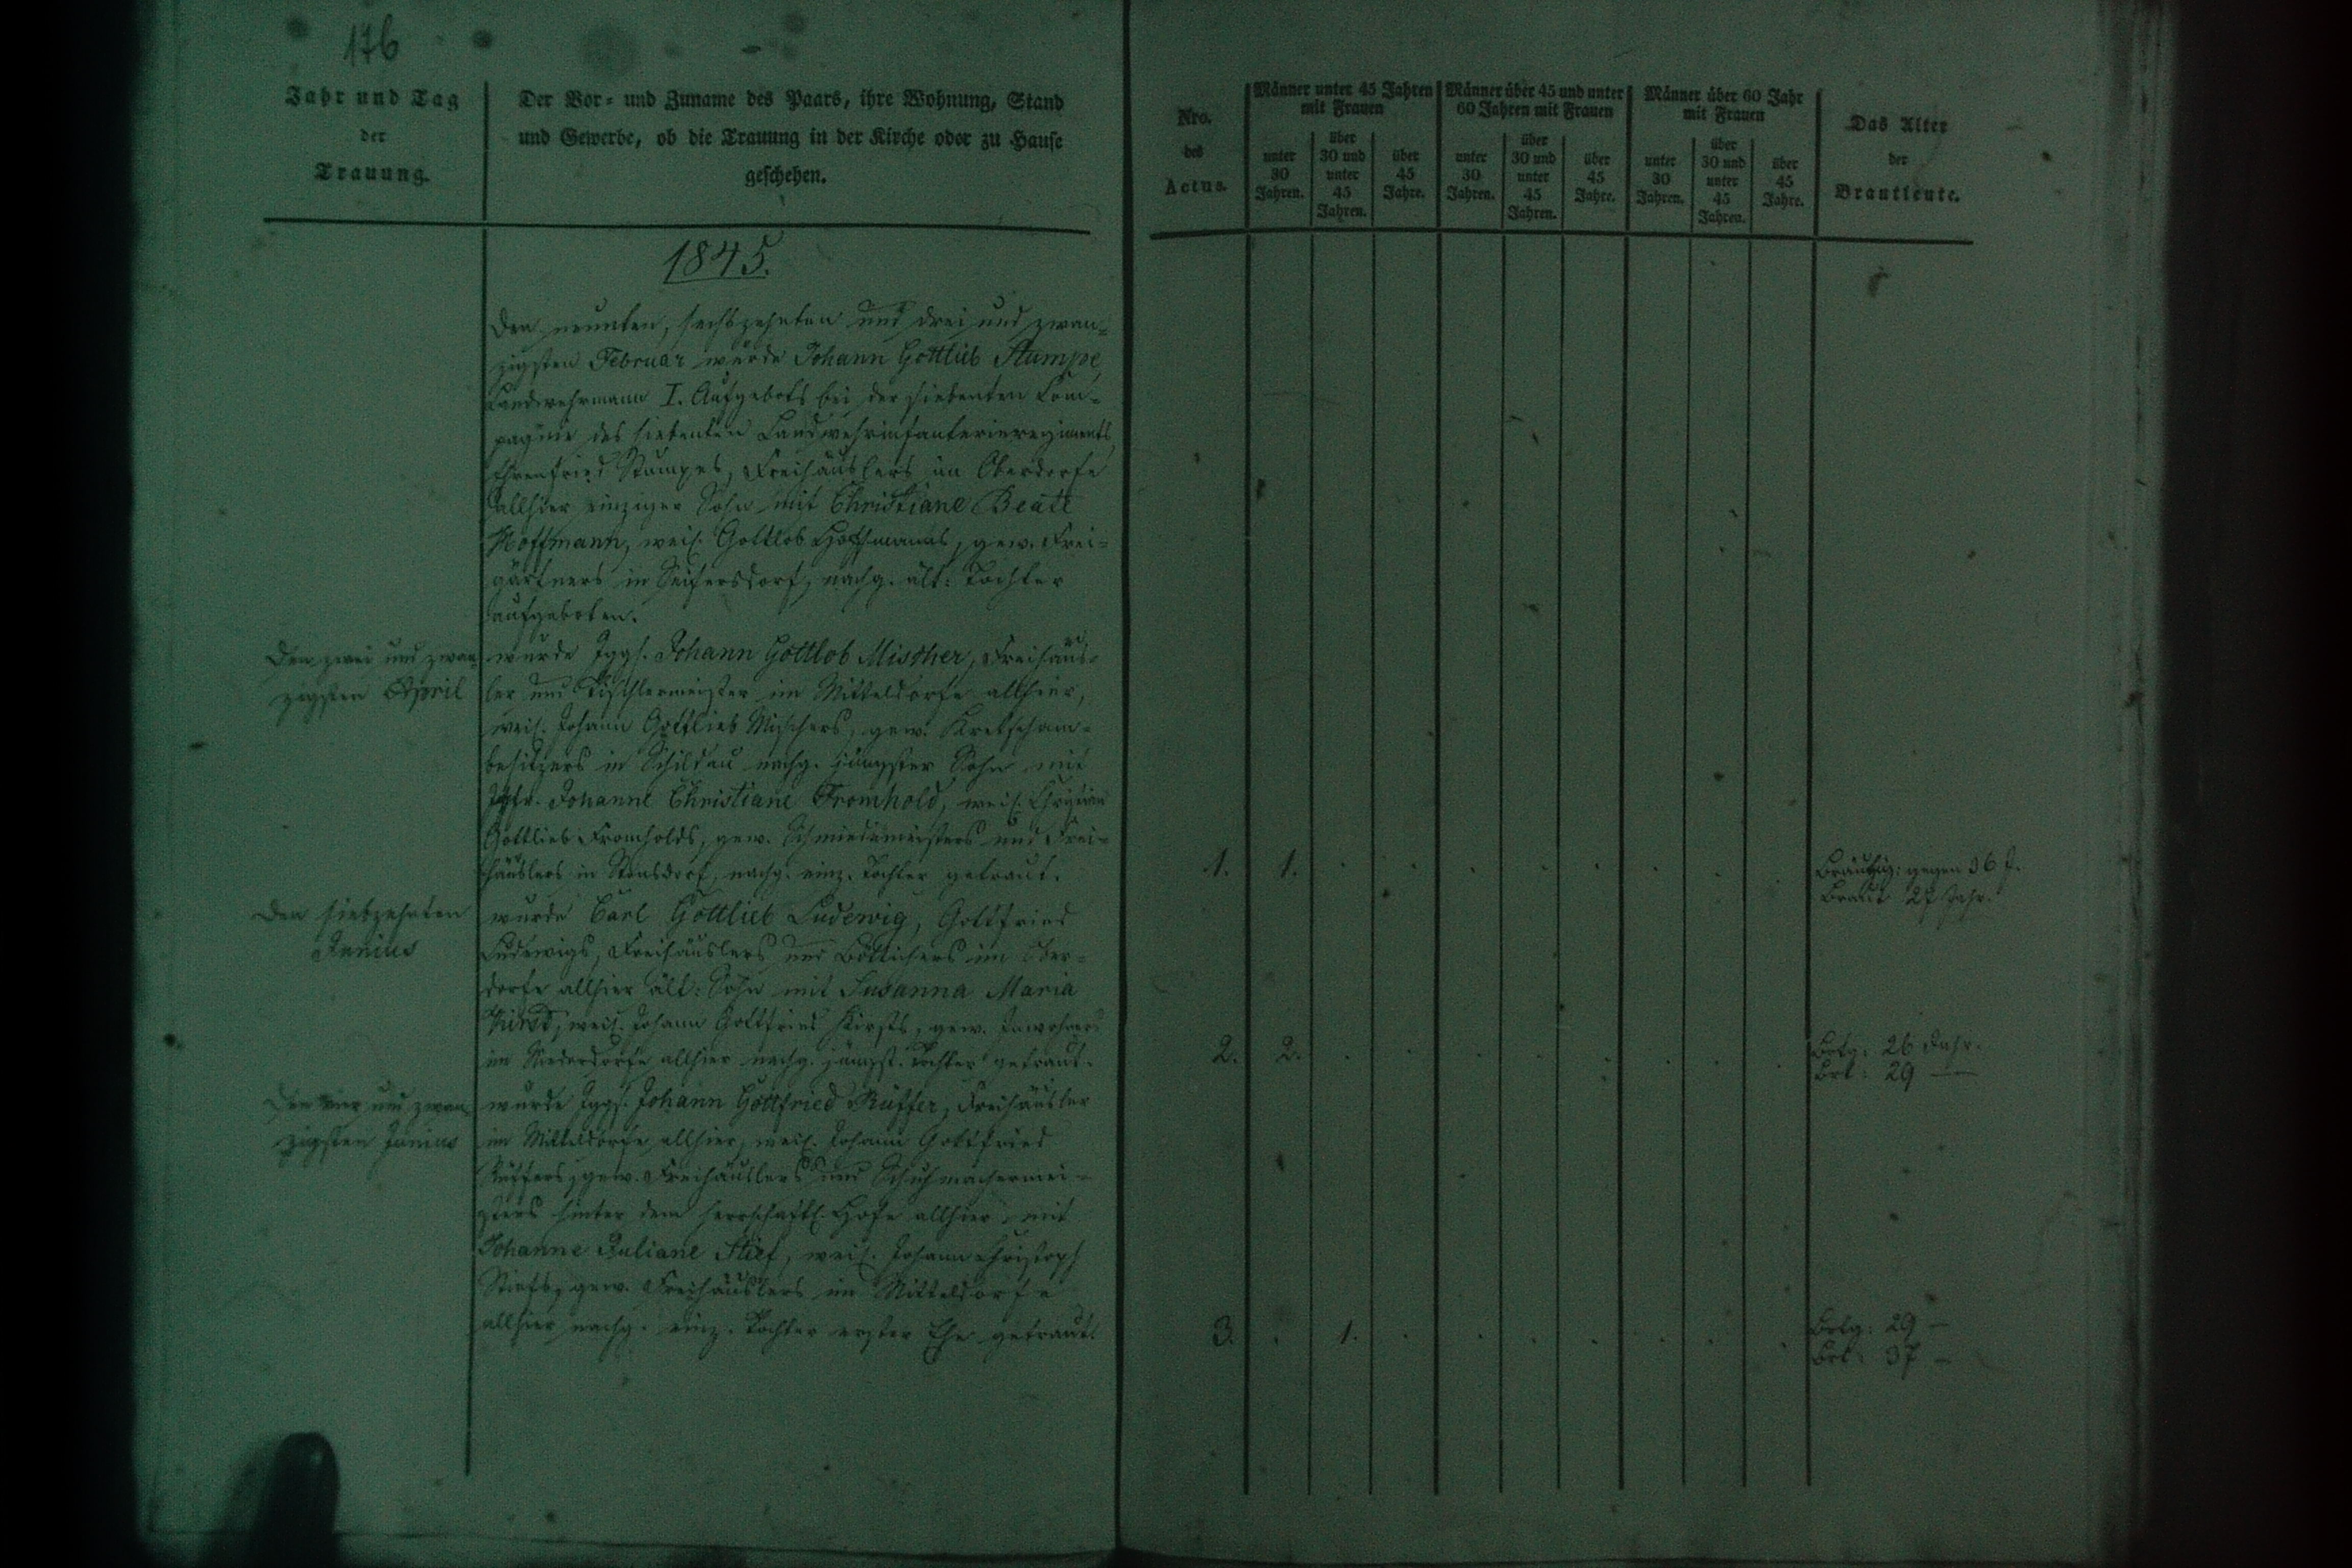 176
Jahr und Tag
der
Trauung.
Der Vor- und Zuname des Paars, ihre Wohnung, Stand
und Gewerbe, ob die Trauung in der Kirche oder zu Hause
geschehen.
1845.
Den neunten, sechszehnten und drei und zwan=
zigsten Februar wurde Johann Gottlieb Stumpe,
Landwehrmann I. Aufgebots bei der siebenten Com=
pagnie des siebenten Landwehrinfanterieregiments,
Ehrenfried Stumpes, Freihäuslers im Oberdorfe
allhier einziger Sohn mit Christiane Beate
Hoffmann, weil. Gottlob Hoffmanns, gew. Frei=
gärtners in Seifersdorf, nachg. ält: Tochter
aufgeboten.
Den zwei und zwan=
zigsten April
wurde Jggs. Johann Gottlob Mischer, Freihäus=
ler und Tischlermeister im Mitteldorfe allhier,
weil. Johann Gottlieb Mischers, gew. Kretscham=
besitzers in Schildau nachg. jüngster Sohn mit
Jgfr. Johanne Christiane Fromhold, weil. Christian
Gottlieb Fromholds, gew. Schmiedemeisters und Frei=
häuslers in Stonsdorf, nachg. einz. Tochter getraut.
Den siebzehnten
Junius
wurde Carl Gottlieb Ludewig, Gottfried
Ludewigs, Freihäuslers und Böttichers im Ober=
dorfe allhier ält: Sohn mit Susanna Maria
Kirst, weil. Johann Gottfried Kirsts, gew. Inwohners
im Niederdorfe allhier nachg. jüngst. Tochter getraut.
Den vier und zwan=
zigsten Junius
wurde Jggs. Johann Gottfried Rüffer, Freihäusler
im Mitteldorfe allhier, weil. Johann Gottfried
Rüffers, gew. Freihäuslers und Schuhmachermei=
sters hinter dem herrschaftl. Hofe allhier, mit
Johanne Juliane Stief, weil. Johann Christoph
Stiefs, gew. Freihäuslers im Mitteldorfe
allhier nachg. einz. Tochter erster Ehe getraut.
Nro.
des
Actus.
Männer unter 45 Jahren
mit Frauen
unter
30
Jahren.
über
30 und
unter
45
Jahren.
über
45
Jahre.
Männer über 45 und unter
60 Jahren mit Frauen
unter
30
Jahren.
über
30 und
unter
45
Jahren.
über
45
Jahre.
Männer über 60 Jahr
mit Frauen
unter
30
Jahren.
über
30 und
unter
45
Jahren.
über
45
Jahre.
Das Alter
der
Brautleute.
1. 1. . . . . . . . .
Bräutig: gegen 36 J.
Braut 27 Jahr.
2. 2. . . . . . . . .
Brtg: 26 Jahr.
Brt: 29 —
3. . 1. . . . . . . .
Brtg: 29 —
Brt: 37 —